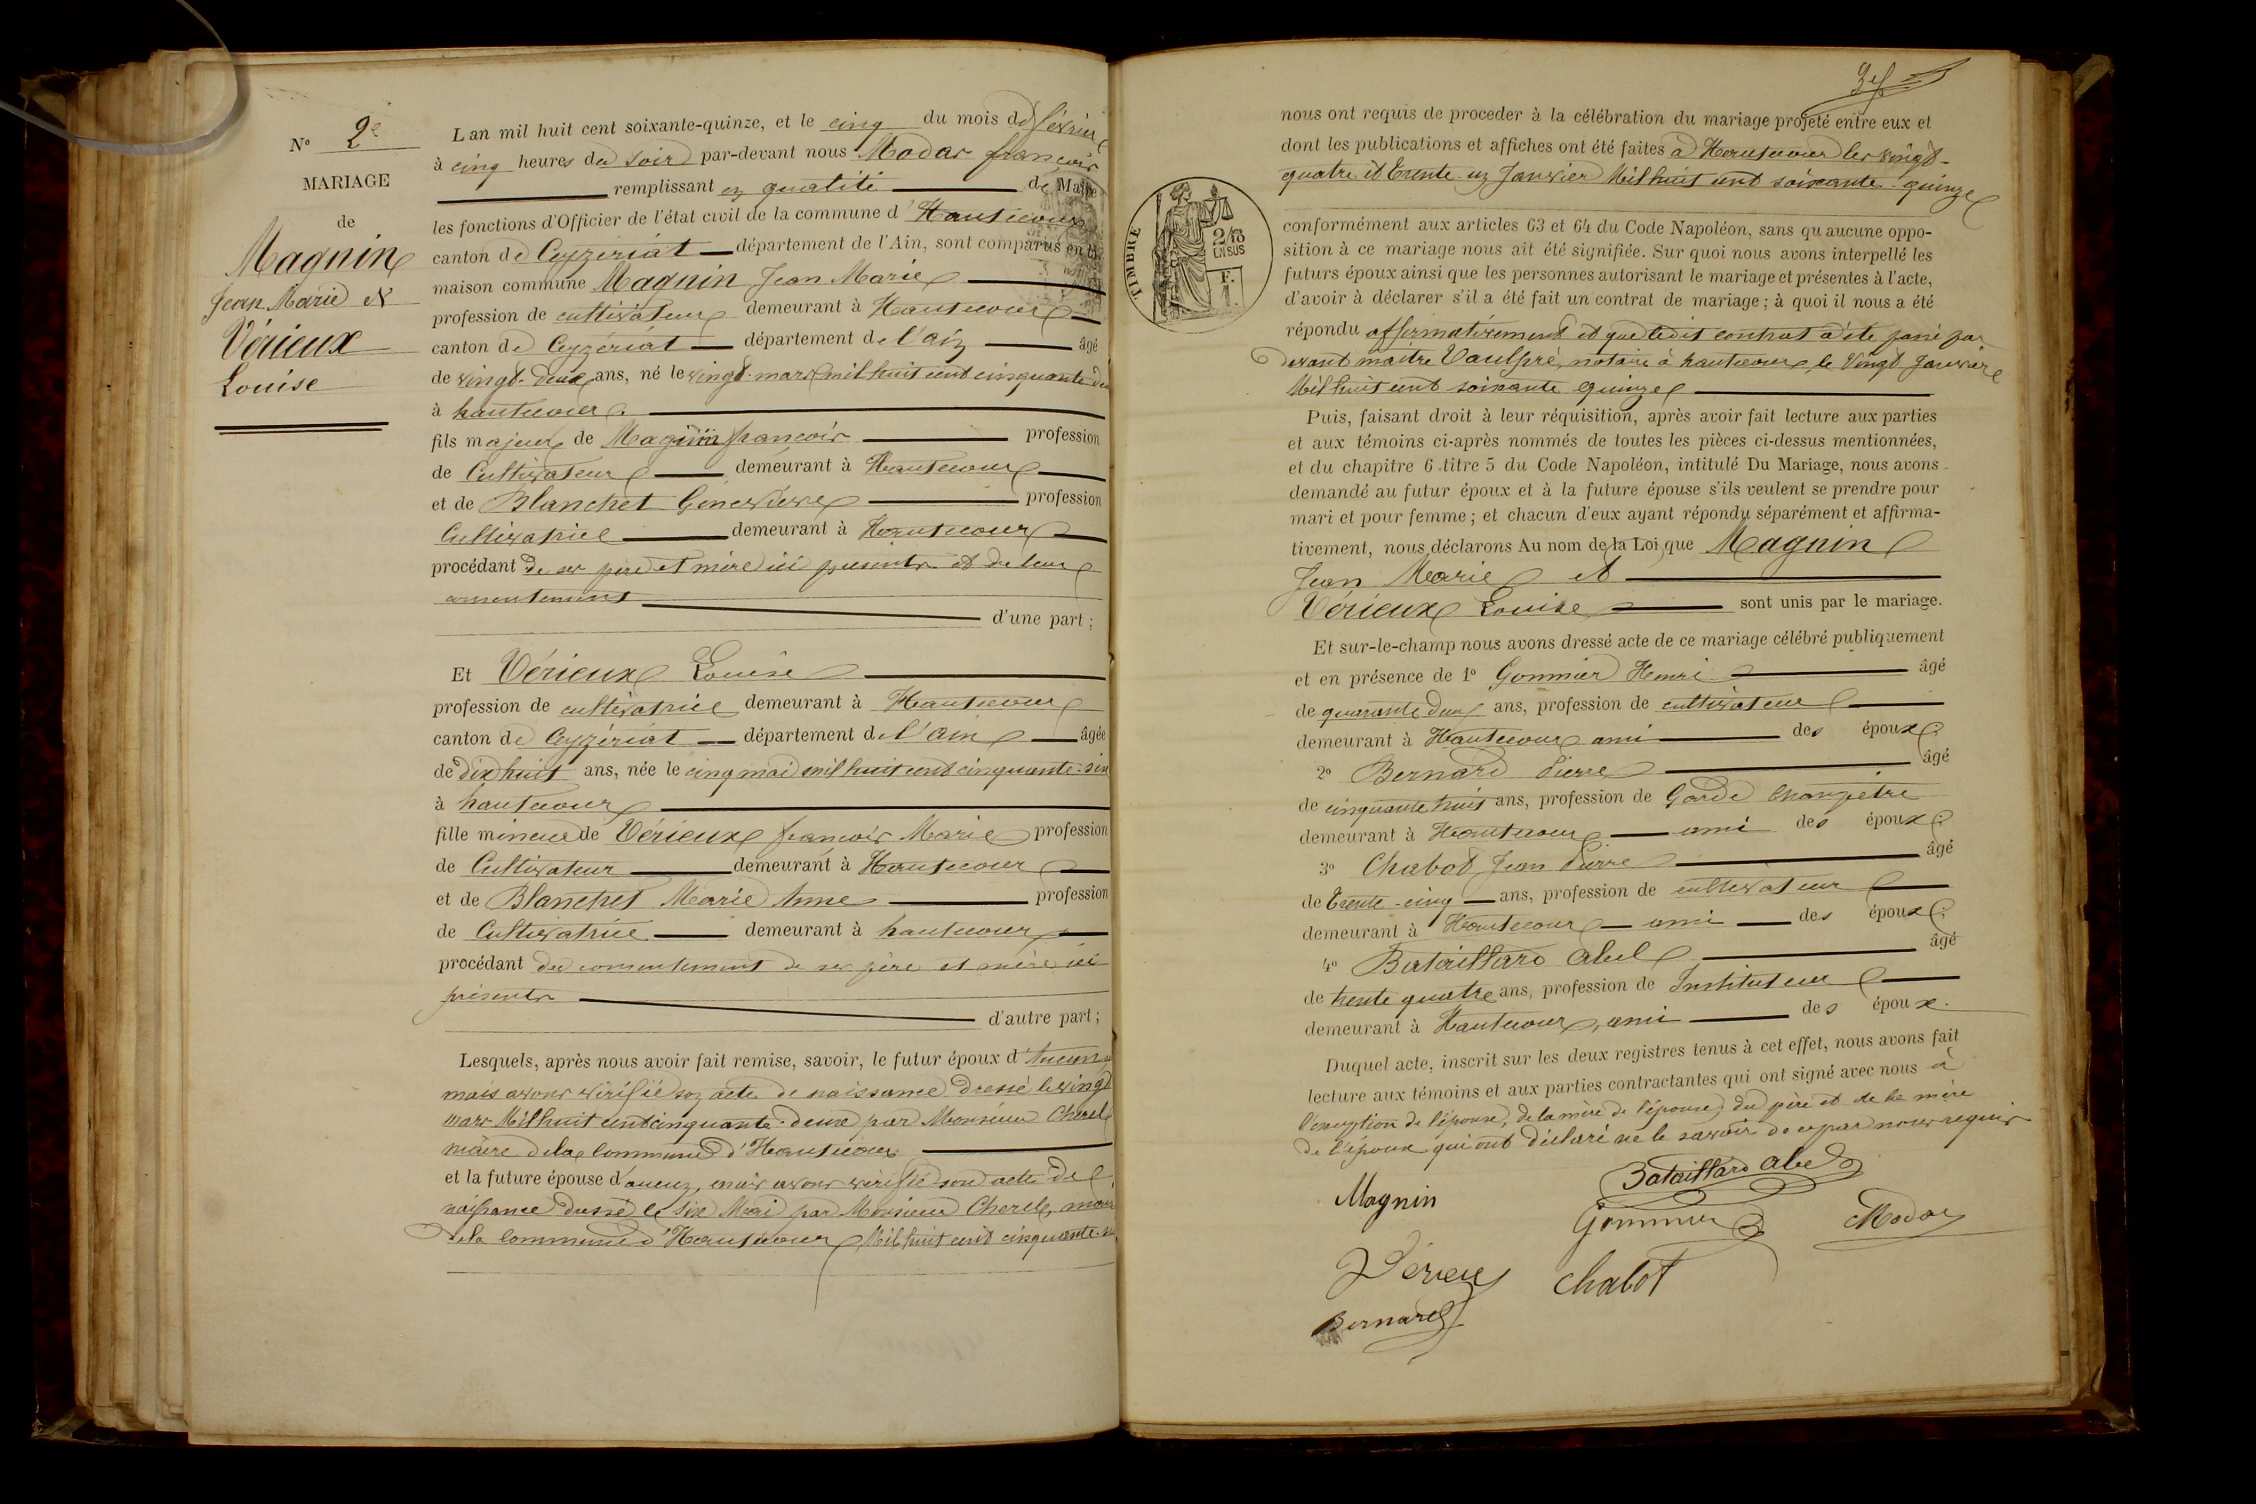 N° 2e
MARIAGE
de
Magnin
Jean Marie &
Vérieux
Louise
L'an mil huit cent soixante-quinze, et le cinq du mois de février
à cinq heures du soir par-devant nous Modas françois
remplissant en qualité de Maire
les fonctions d'Officier de l'état civil de la commune d'Hautecour
canton de Ceyzériat département de l'Ain, sont comparus en la
maison commune Magnin Jean Marie
profession de cultivateur demeurant à Hautecour
canton de Ceyzériat département de l'ain âgé
de vingt-deux ans, né le vingt mars mil huit cent cinquante deux
à hautecour
fils majeur de Magnin françois profession
de Cultivateur demeurant à Hautecour
et de Blanchet Geneviève profession
Cultivatrice demeurant à Hautecour
procédant de ses père et mère ici présents et de leur
consentement
d'une part ;
Et Vérieux Louise
profession de cultivatrice demeurant à Hautecour
canton de Ceyzériat département de l'ain âgée
de dix huit ans, née le cinq mai mil huit cent cinquante-six
à hautecour
fille mineure de Vérieux françois Marie profession
de Cultivateur demeurant à Hautecour
et de Blanchet Marie Anne profession
de Cultivatrice demeurant à hautecour
procédant du consentement de ses père et mère ici
présents
d'autre part ;
Lesquels, après nous avoir fait remise, savoir, le futur époux d'Aucun
mais avons vérifié son acte de naissance dressé le vingt
mars Mil huit cent cinquante-deux par Monsieur Cherel
maire de la Commune d'Hautecour
et la future épouse d'aucun, mais avons vérifié son acte de
naissance dressé le Six Mai par Monsieur Cherel, maire
de la Commune d'Hautecour Mil huit cent cinquante-six
nous ont requis de proceder à la célébration du mariage projeté entre eux et
dont les publications et affiches ont été faites à Hautecour les vingt-
quatre et trente-un Janvier Mil huit cent soixante-quinze
TIMBRE
2/10
EN SUS
F.
1.
conformément aux articles 63 et 64 du Code Napoléon, sans qu'aucune oppo-
sition à ce mariage nous ait été signifiée. Sur quoi nous avons interpellé les
futurs époux ainsi que les personnes autorisant le mariage et présentes à l'acte,
d'avoir à déclarer s'il a été fait un contrat de mariage ; à quoi il nous a été
répondu affirmativement et que ledit contrat a été passé par
devant maître Vaulpré, notaire à hautecour le Vingt Janvier
Mil huit cent soixante quinze
Puis, faisant droit à leur réquisition, après avoir fait lecture aux parties
et aux témoins ci-après nommés de toutes les pièces ci-dessus mentionnées,
et du chapitre 6 titre 5 du Code Napoléon, intitulé Du Mariage, nous avons
demandé au futur époux et à la future épouse s'ils veulent se prendre pour
mari et pour femme ; et chacun d'eux ayant répondu séparément et affirma-
tivement, nous déclarons Au nom de la Loi que Magnin
Jean Marie et
Vérieux Louise sont unis par le mariage.
Et sur-le-champ nous avons dressé acte de ce mariage célébré publiquement
et en présence de 1° Gommier Henri âgé
de quarante deux ans, profession de cultivateur
demeurant à Hautecour ami des époux ;
2° Bernard Pierre âgé
de cinquante huit ans, profession de Garde Champêtre
demeurant à Hautecour ami des époux ;
3° Chabot Jean Pierre âgé
de Trente-cinq ans, profession de cultivateur
demeurant à Hautecour ami des époux ;
4° Bataillard Abel âgé
de trente quatre ans, profession de Instituteur
demeurant à Hautecour, ami des époux.
Duquel acte, inscrit sur les deux registres tenus à cet effet, nous avons fait
lecture aux témoins et aux parties contractantes qui ont signé avec nous à
l'exception de l'épouse, de la mère de l'épouse, du père et de la mère
de l'époux qui ont déclaré ne le savoir de ce par nous requis
Bataillard Abel
Magnin
Gommier
Modas
Vérieux
Chabot
Bernard